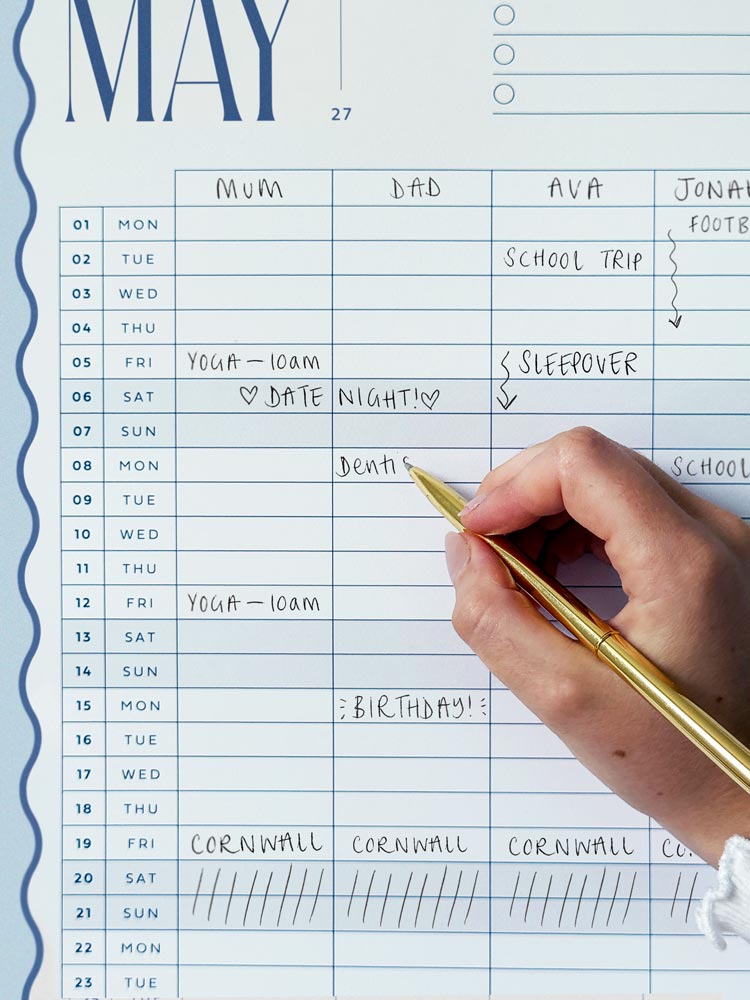 MAY
27
MUM DAD AVA
01 MON
02 TUE SCHOOL TRIP
03 WED
04 THU
05 FRI YOGA - 10am SLEEPOVER
06 SAT ♡ DATE NIGHT! ♡
07 SUN
08 MON Denti SCHOOL
09 TUE
10 WED
11 THU
12 FRI YOGA - 10am
13 SAT
14 SUN
15 MON BIRTHDAY!
16 TUE
17 WED
18 THU
19 FRI CORNWALL CORNWALL CORNWALL
20 SAT
21 SUN
22 MON
23 TUE